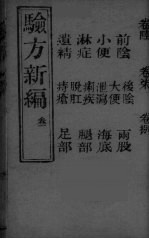 卷陸 卷柒 卷捌
前陰 後陰 兩股
小便 大便 海底
淋症 泄瀉 腿部
遺精 痢疾 足部
痔瘡
脫肛
驗方新編
叁